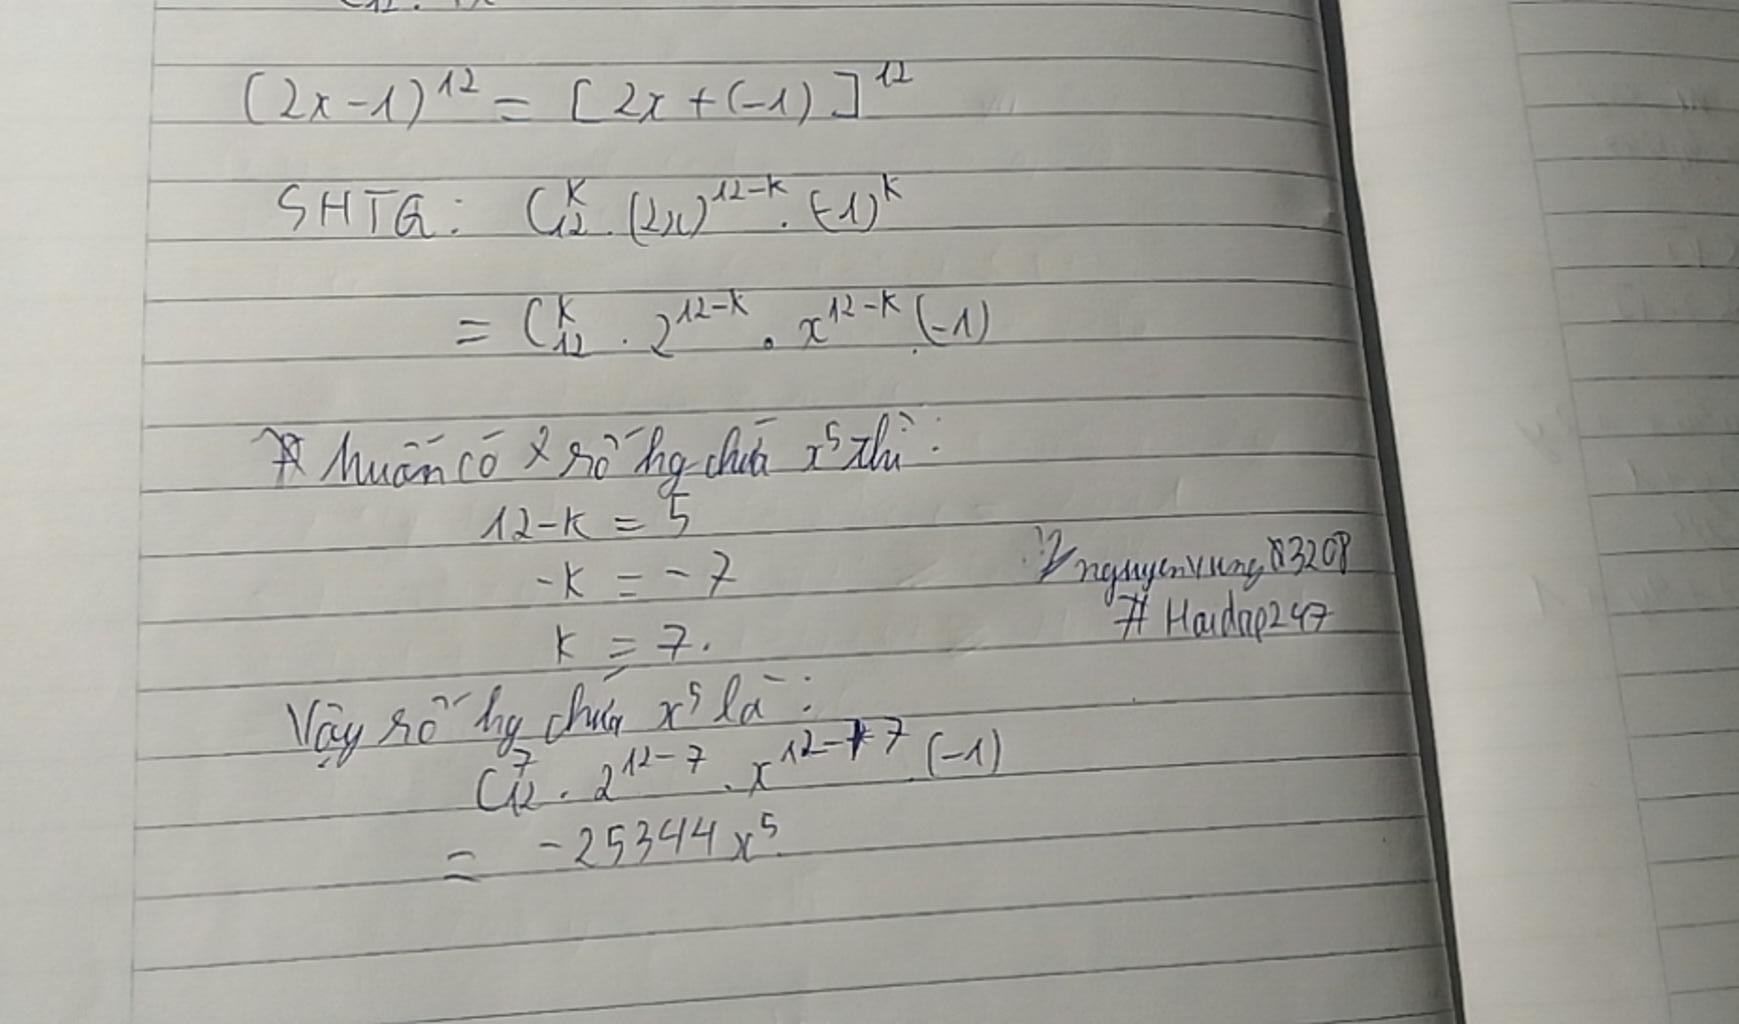 (2x-1)^12 = [2x+(-1)]^12
SHTQ: C_12^k . (2x)^12-k . (-1)^k
= C_12^k . 2^12-k . x^12-k . (-1)
Muốn có số hg chứa x^5 thì:
12-k = 5
-k = -7
k = 7.
nguyenvung83208
# Hoidap247
Vậy số hg chứa x^5 là:
C_12^7 . 2^12-7 . x^12-7 . (-1)
= -25344x^5